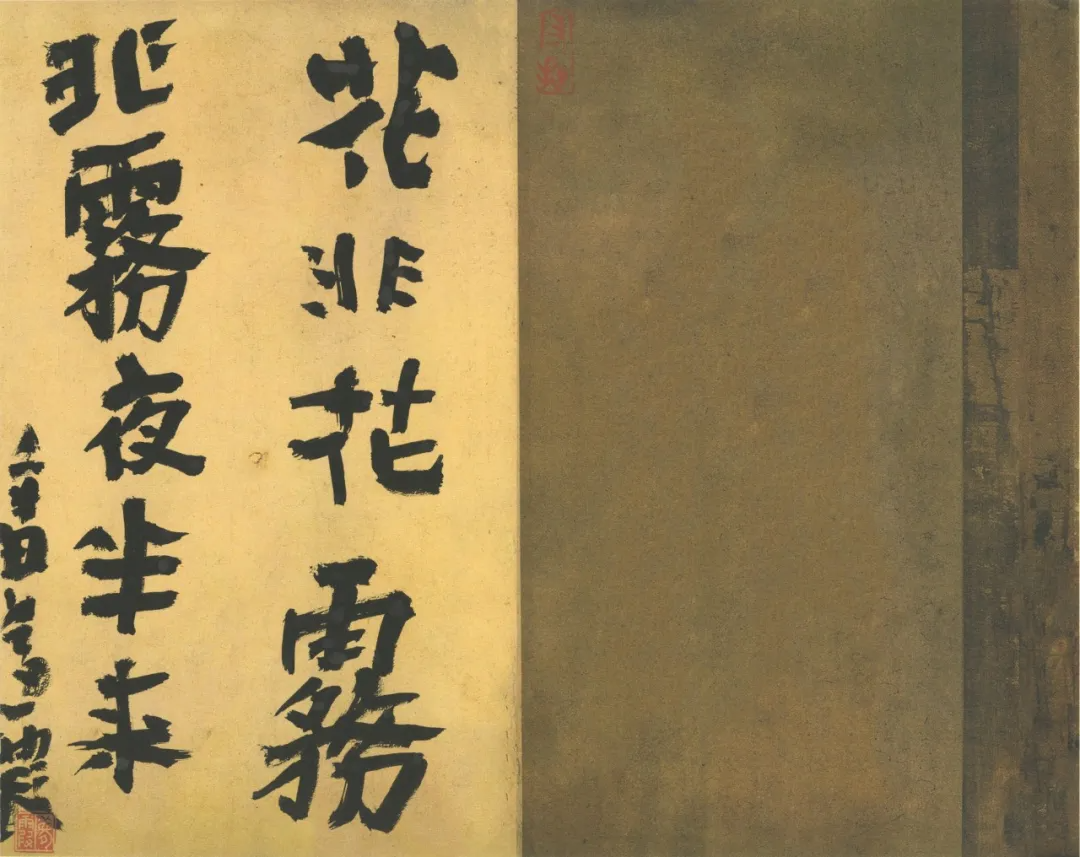 花非花霧
非霧夜半来